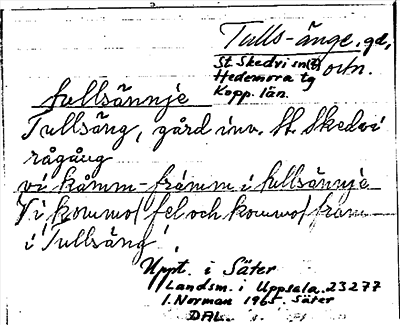 Tulls-änge. gd,
St Skedvi sn(?) ortn.
Hedemora tg
Kopp. län.
tullsännje
Tullsäng, gård inv. St. Skedvi
rågång
vi kåmm-främm i tullsännje
Vi kommo fel och kommo fram
i Tullsäng!
Uppt. i Säter
Landsm. i Uppsala. 23277
I. Norman 1965. Säter
DAL.